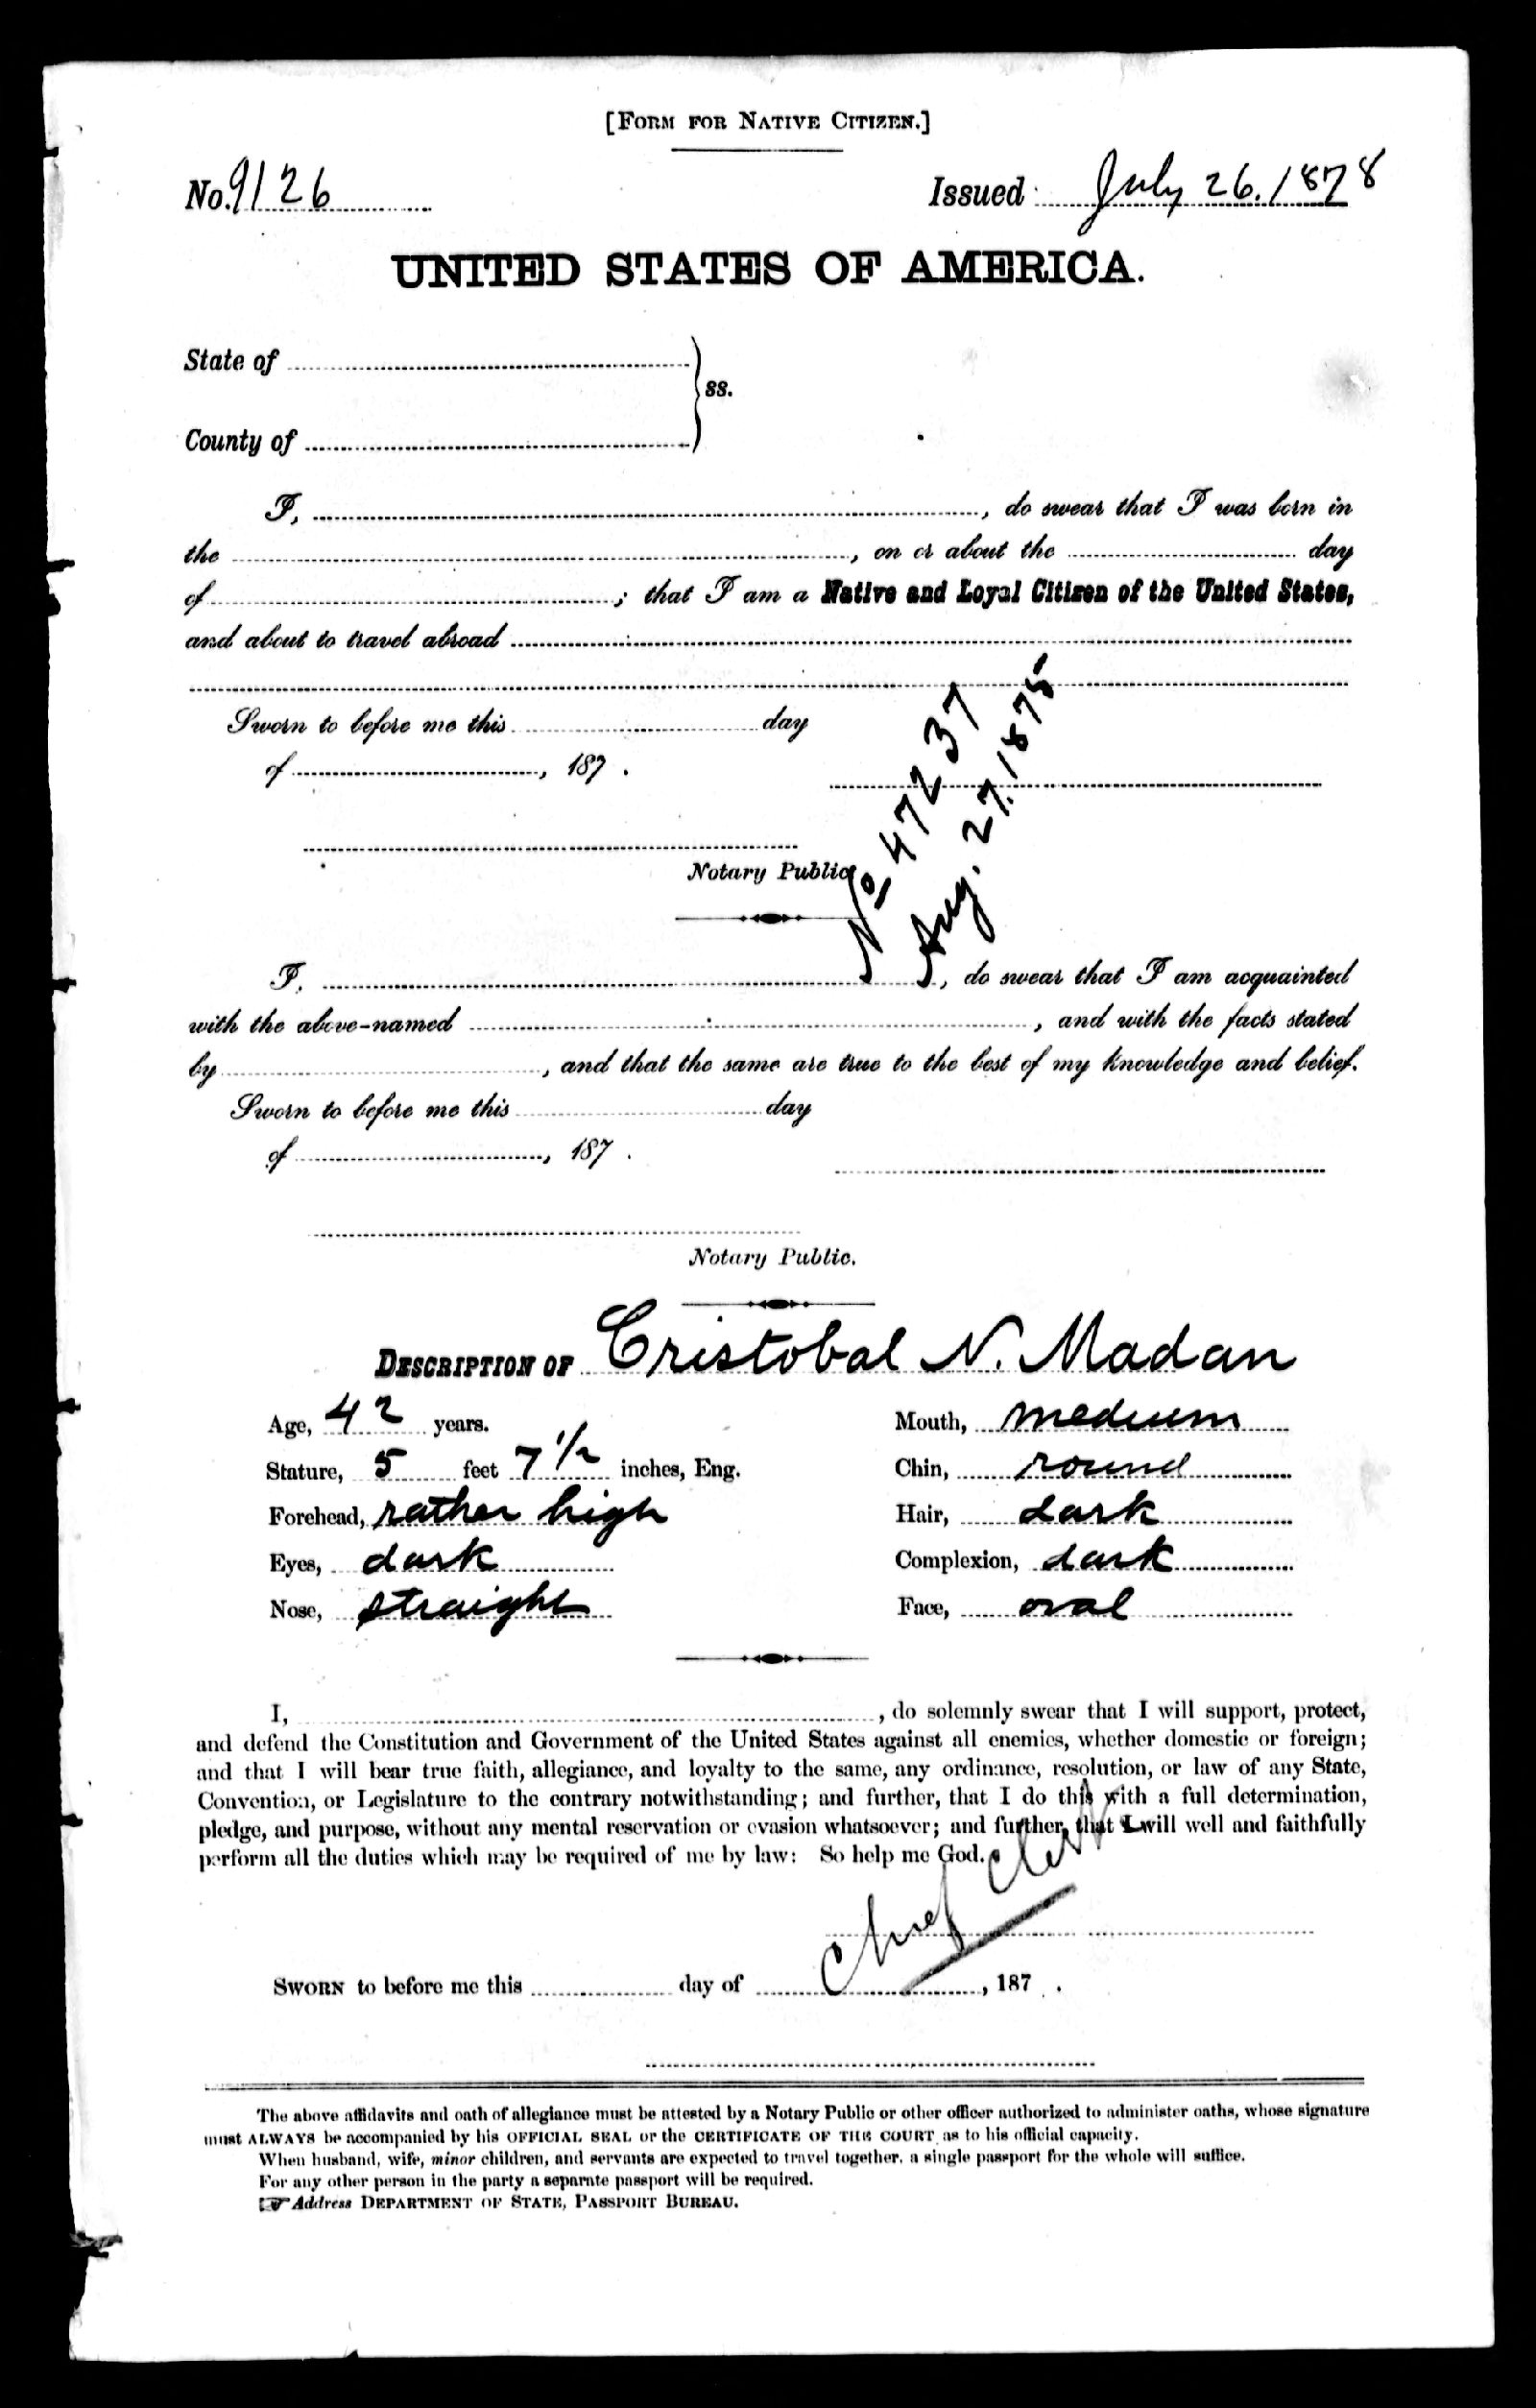 [FORM FOR NATIVE CITIZEN.]
No. 9126 Issued July 26. 1878
UNITED STATES OF AMERICA.
State of
ss.
County of
I, , do swear that I was born in
the , on or about the day
of ; that I am a Native and Loyal Citizen of the United States,
and about to travel abroad
Sworn to before me this day
of , 187 .
Notary Public.
No 47237
Aug. 27. 1875
I, , do swear that I am acquainted
with the above-named , and with the facts stated
by , and that the same are true to the best of my knowledge and belief.
Sworn to before me this day
of , 187 .
Notary Public.
DESCRIPTION OF Cristobal N. Madan
Age, 42 years. Mouth, medium
Stature, 5 feet 7 1/2 inches, Eng. Chin, round
Forehead, rather high Hair, dark
Eyes, dark Complexion, dark
Nose, straight Face, oval
I, , do solemnly swear that I will support, protect,
and defend the Constitution and Government of the United States against all enemies, whether domestic or foreign;
and that I will bear true faith, allegiance, and loyalty to the same, any ordinance, resolution, or law of any State,
Convention, or Legislature to the contrary notwithstanding; and further, that I do this with a full determination,
pledge, and purpose, without any mental reservation or evasion whatsoever; and further, that I will well and faithfully
perform all the duties which may be required of me by law: So help me God.
Chief Clerk
SWORN to before me this day of , 187 .
The above affidavits and oath of allegiance must be attested by a Notary Public or other officer authorized to administer oaths, whose signature
must ALWAYS be accompanied by his OFFICIAL SEAL or the CERTIFICATE OF THE COURT as to his official capacity.
When husband, wife, minor children, and servants are expected to travel together, a single passport for the whole will suffice.
For any other person in the party a separate passport will be required.
☞ Address DEPARTMENT OF STATE, PASSPORT BUREAU.